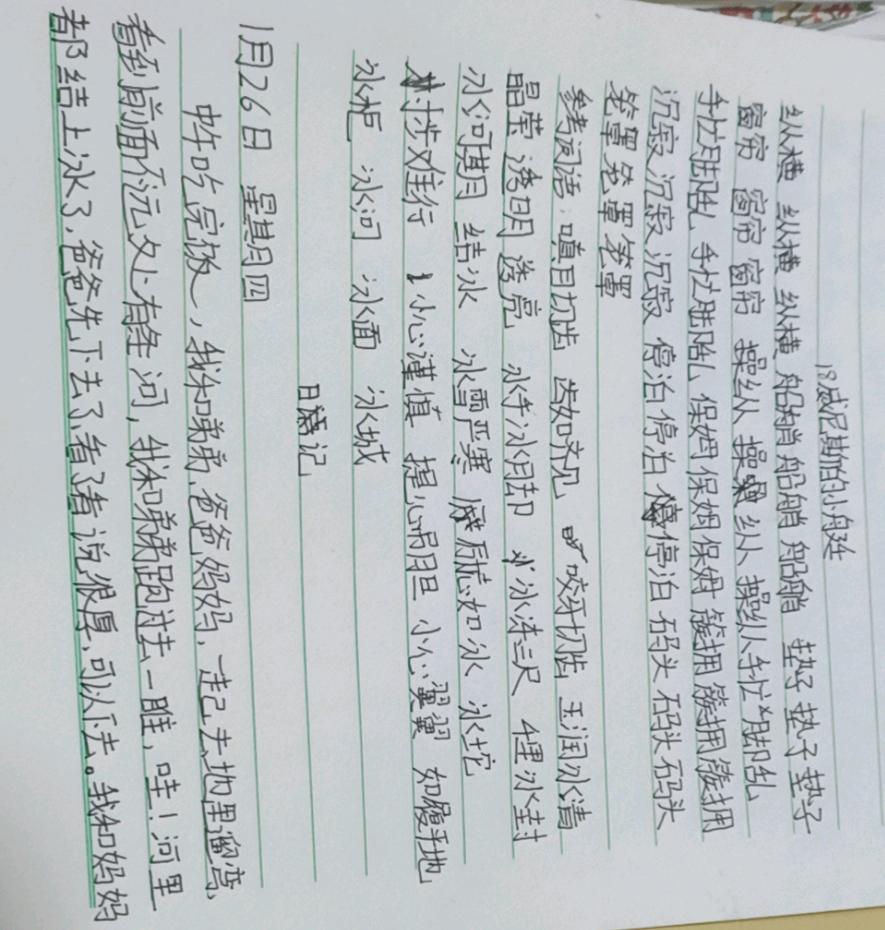 18威尼斯的小艇
纵横 纵横 纵横 船艄 船艄 船艄 垫子 垫子 垫子
窗帘 窗帘 窗帘 操纵 操纵 操纵 手忙脚乱
手忙脚乱 手忙脚乱 保姆 保姆 保姆 簇拥 簇拥 簇拥
沉寂 沉寂 沉寂 停泊 停泊 停泊 码头 码头 码头
笼罩 笼罩 笼罩
参考词语:嗔目切齿 齿如齐贝 咬牙切齿 玉润冰清
晶莹 透明 透亮 冰手冰脚 冰冻三尺 千里冰封
冰河期 结冰 冰雪严寒 凛如冰 冰坨
寸步难行 小心谨慎 提心吊胆 小心翼翼 如履平地
冰柜 冰河 冰面 冰城
日记
1月26日 星期四
中午吃完饭,我和弟弟,爸爸妈妈,一起去地里遛弯,
看到前面不远处有条河,我和弟弟跑过去一瞧,哇!河里
都结上冰了,爸爸先下去了,看了看说很厚,可以下去。我和妈妈